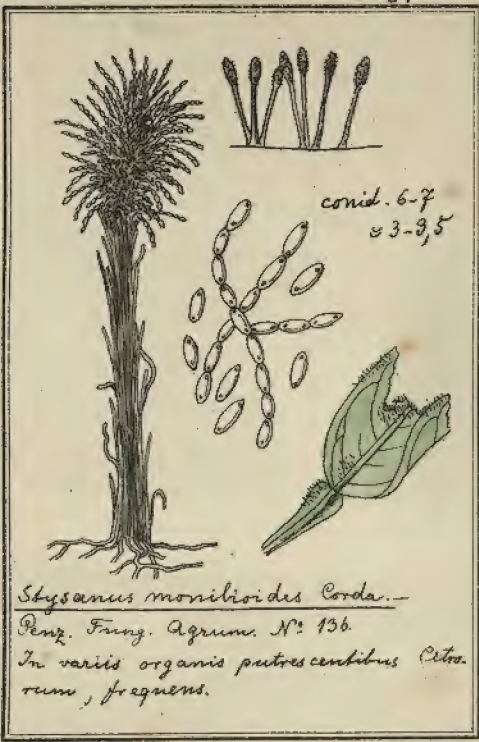 conid. 6-7
≈ 3-3,5
Stysanus monilioides Corda.—
Penz. Fung. Agrum. Nº 136.
In variis organis putrescentibus Citro-
rum, frequens.